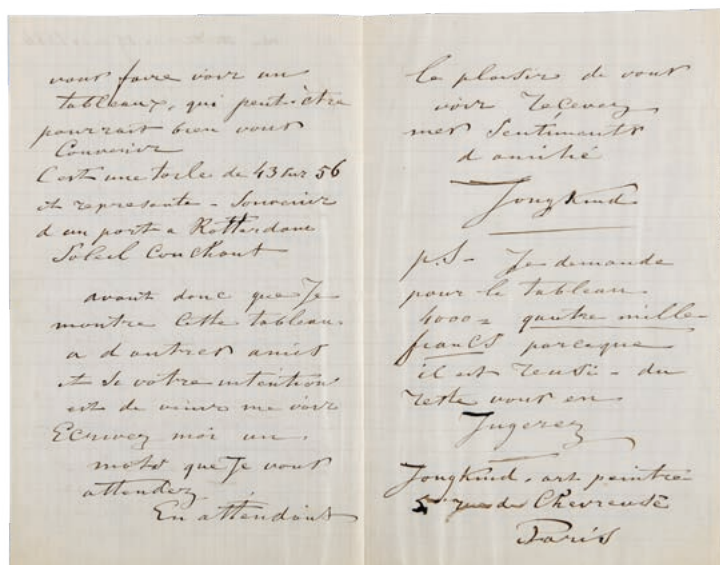 vous faire voir un
tableaux, qui peut-être
pourrait bien vous
Convenir
C'est une toile de 43 sur 56
et represente - Souvenir
d'un port a Rotterdam
Soleil Couchant
avant donc que Je
montre Cette tableau
a d'autres amis
et Si votre intention
est de venir me voir
Ecrivez moi un
mots que Je vous
attendez
En attendant
le plaisir de vous
voir Reçevez
mes Sentiments
d'amitié
Jongkind
p.S - Je demande
pour le tableau
4000 = qautre mille
francs parceque
il est reusi - du
reste vous en
Jugerez
Jongkind. art peintre
5 rue de Chevreuse
Paris